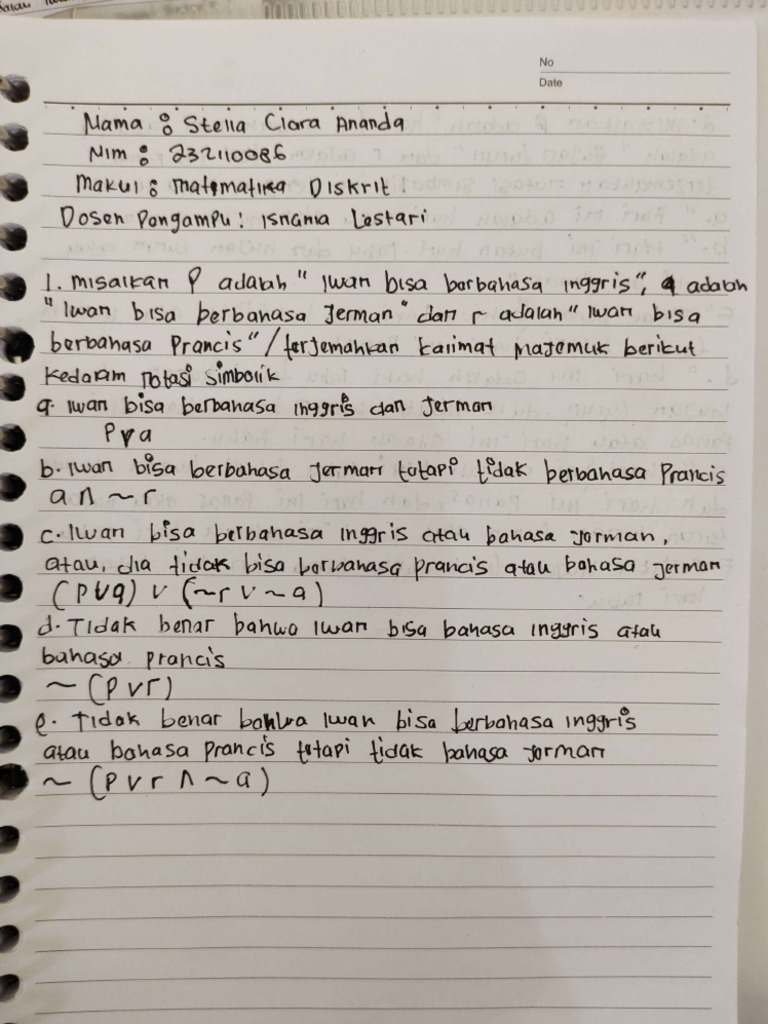 No
Date
Nama : Stella Clara Ananda
Nim : 232110086
Makul : matematika Diskrit
Dosen Pengampu : Isnania Lestari
1. misalkan P adalah " Iwan bisa berbahasa inggris", q adalah
"Iwan bisa berbahasa Jerman" dan r adalah "Iwan bisa
berbahasa Prancis" / terjemahkan kalimat majemuk berikut
kedalam notasi simbolik
a. Iwan bisa berbahasa inggris dan Jerman
P v q
b. Iwan bisa berbahasa Jerman tetapi tidak berbahasa Prancis
q ∧ ~ r
c. Iwan bisa berbahasa inggris atau bahasa Jerman,
atau, dia tidak bisa berbahasa prancis atau bahasa Jerman
(p v q) v (~r v ~q)
d. Tidak benar bahwa Iwan bisa bahasa inggris atau
bahasa prancis
~ (p v r)
e. Tidak benar bahwa Iwan bisa berbahasa inggris
atau bahasa prancis tetapi tidak bahasa Jerman
~ (p v r ∧ ~ q)